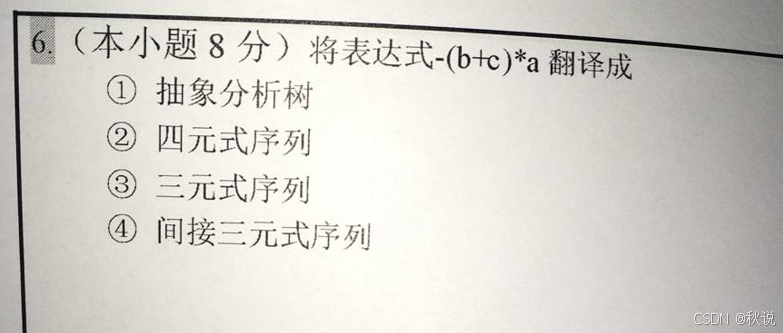 6.（本小题 8 分）将表达式-(b+c)*a 翻译成
① 抽象分析树
② 四元式序列
③ 三元式序列
④ 间接三元式序列
CSDN @秋说